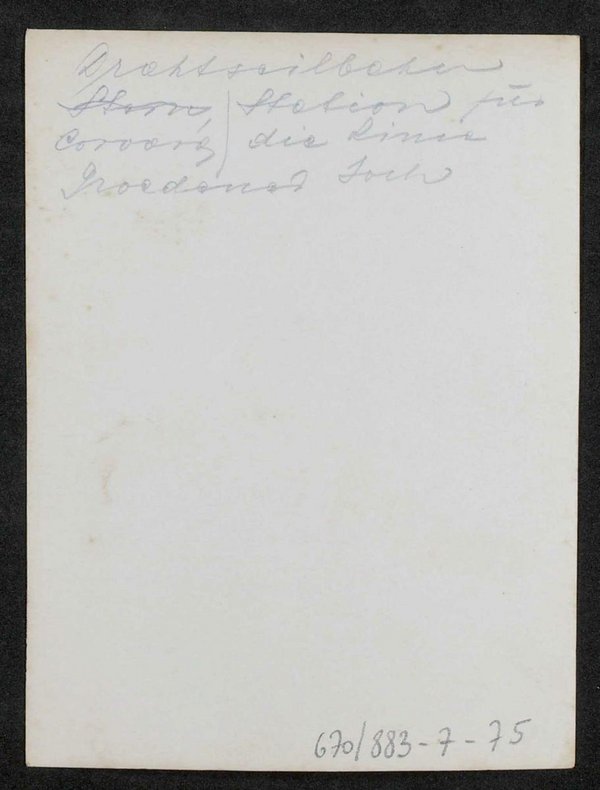 Drahtseilbahn
Station für
Corvara | die Linie
Groedener Joch
670/883-7-75